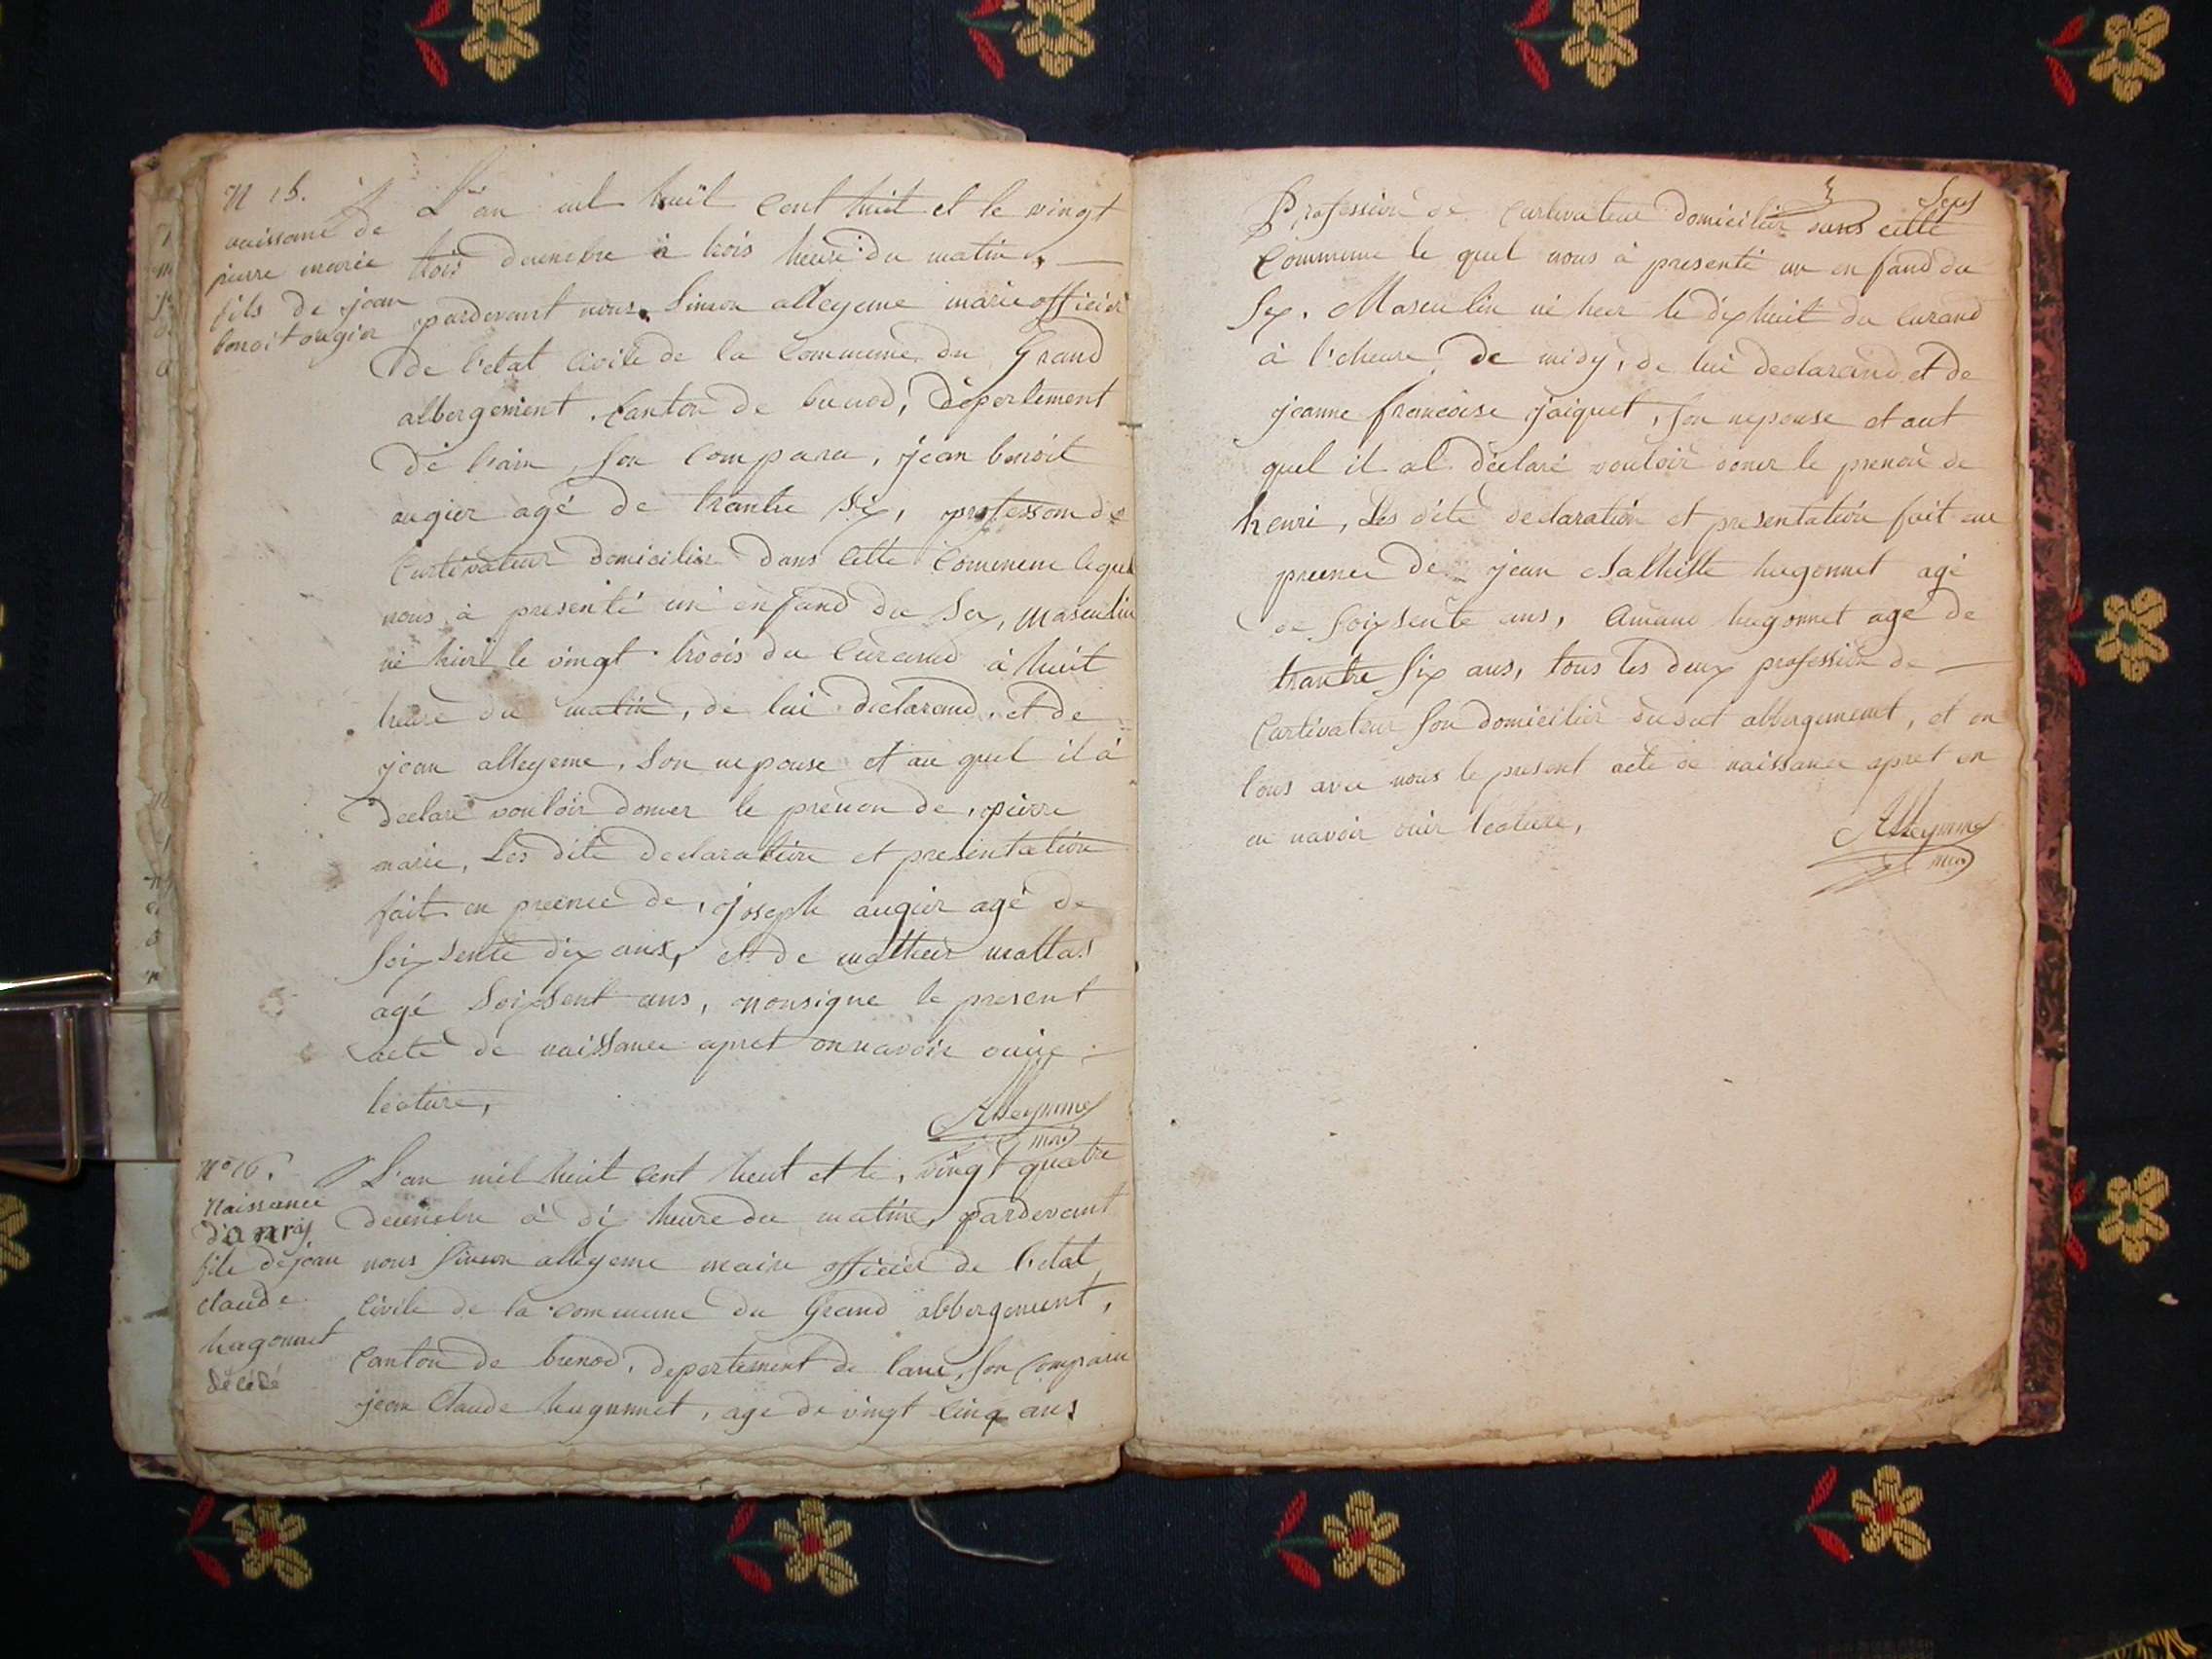 N 15.
naissance de
pierre marie
fils de jean
benoit ougier
L'an mil huit cent huit et le vingt
trois decenbre à trois heure du matin,
pardevant nous Simon alleyeme maire officier
de l'etat civile de la Commune du Grand
albergement, Canton de brenod, depertement
de l'ain, son Compara, jean benoit
augier agé de trantre six, professon de
Curtivateur domicilier dans cette Commune lequel
nous à presenté un enfand du Sex, masculin
né hier le vingt troois du Curand à huit
heure du matin, de lui declarand, et de
jean alleyeme, Son nepouse et au quel il à
declaré vouloir doner le prenon de, pierre
marie, Les dite declaration et presentation
fait en preence de, joseph augier agé de
soixsente dix ans, et de mathieu mallas
agé soixsent ans, nonsigne le present
acte de naissance apret onnavoir ouire
leature,
Alleymme
mre
N° 16.
Naissance
d'anry
fils de jean
claude
hugonnet
décédé
L'an mil huit Cent heut et le, vingt quatre
decenbre à dix heure du matine, pardevant
nous Simon alleyeme maire officier de l'etat
Civile de la commune du Grand abbergement,
Canton de brenod, depertement de l'ain, Son Comparu
jean Claude hugunnet, age de vingt Cinq ans
Sept
Profession de Curtivateur domicilier dans cette
Commune le quel nous à presenté un enfand du
Sex. Masculin né heer le dixhuit du Curand
à l'eheure de midy, de lui declarand et de
jeanne francoise jaiquet, Son nepouse et aut
quel il al declaré vouloir doner le prenon de
henri, Les dite declaration et presentation fait en
preence de jean Baltiste hugonnet agé
de soixsente ans, Amand hugonnet age de
trantre six ans, tous les deux profession de
Curtivateur son domicilier dudut abbergement, et on
tous avec nous le present acte de naissance apret en
en navoir ouir leature,
Alleymme
mre